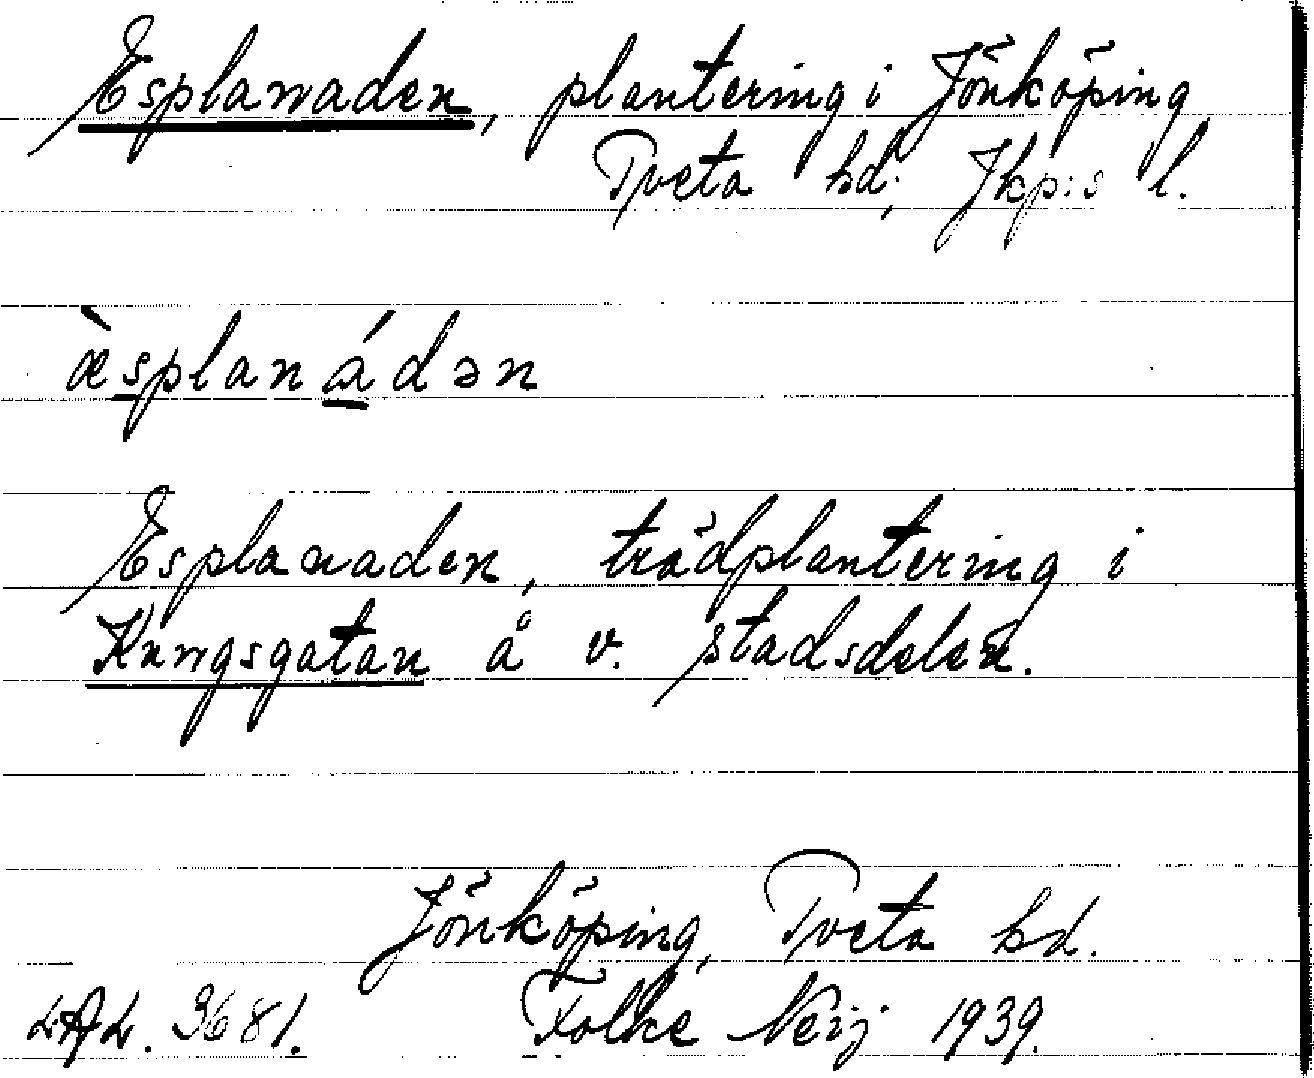 Esplanaden, plantering i Jönköping
Tveta hd; Jkp:s l.
æ̀splanádən
Esplanaden, trädplantering i
Kungsgatan å v. stadsdelen.
Jönköping, Tveta hd.
LAL. 3681. Folke Neij 1939.